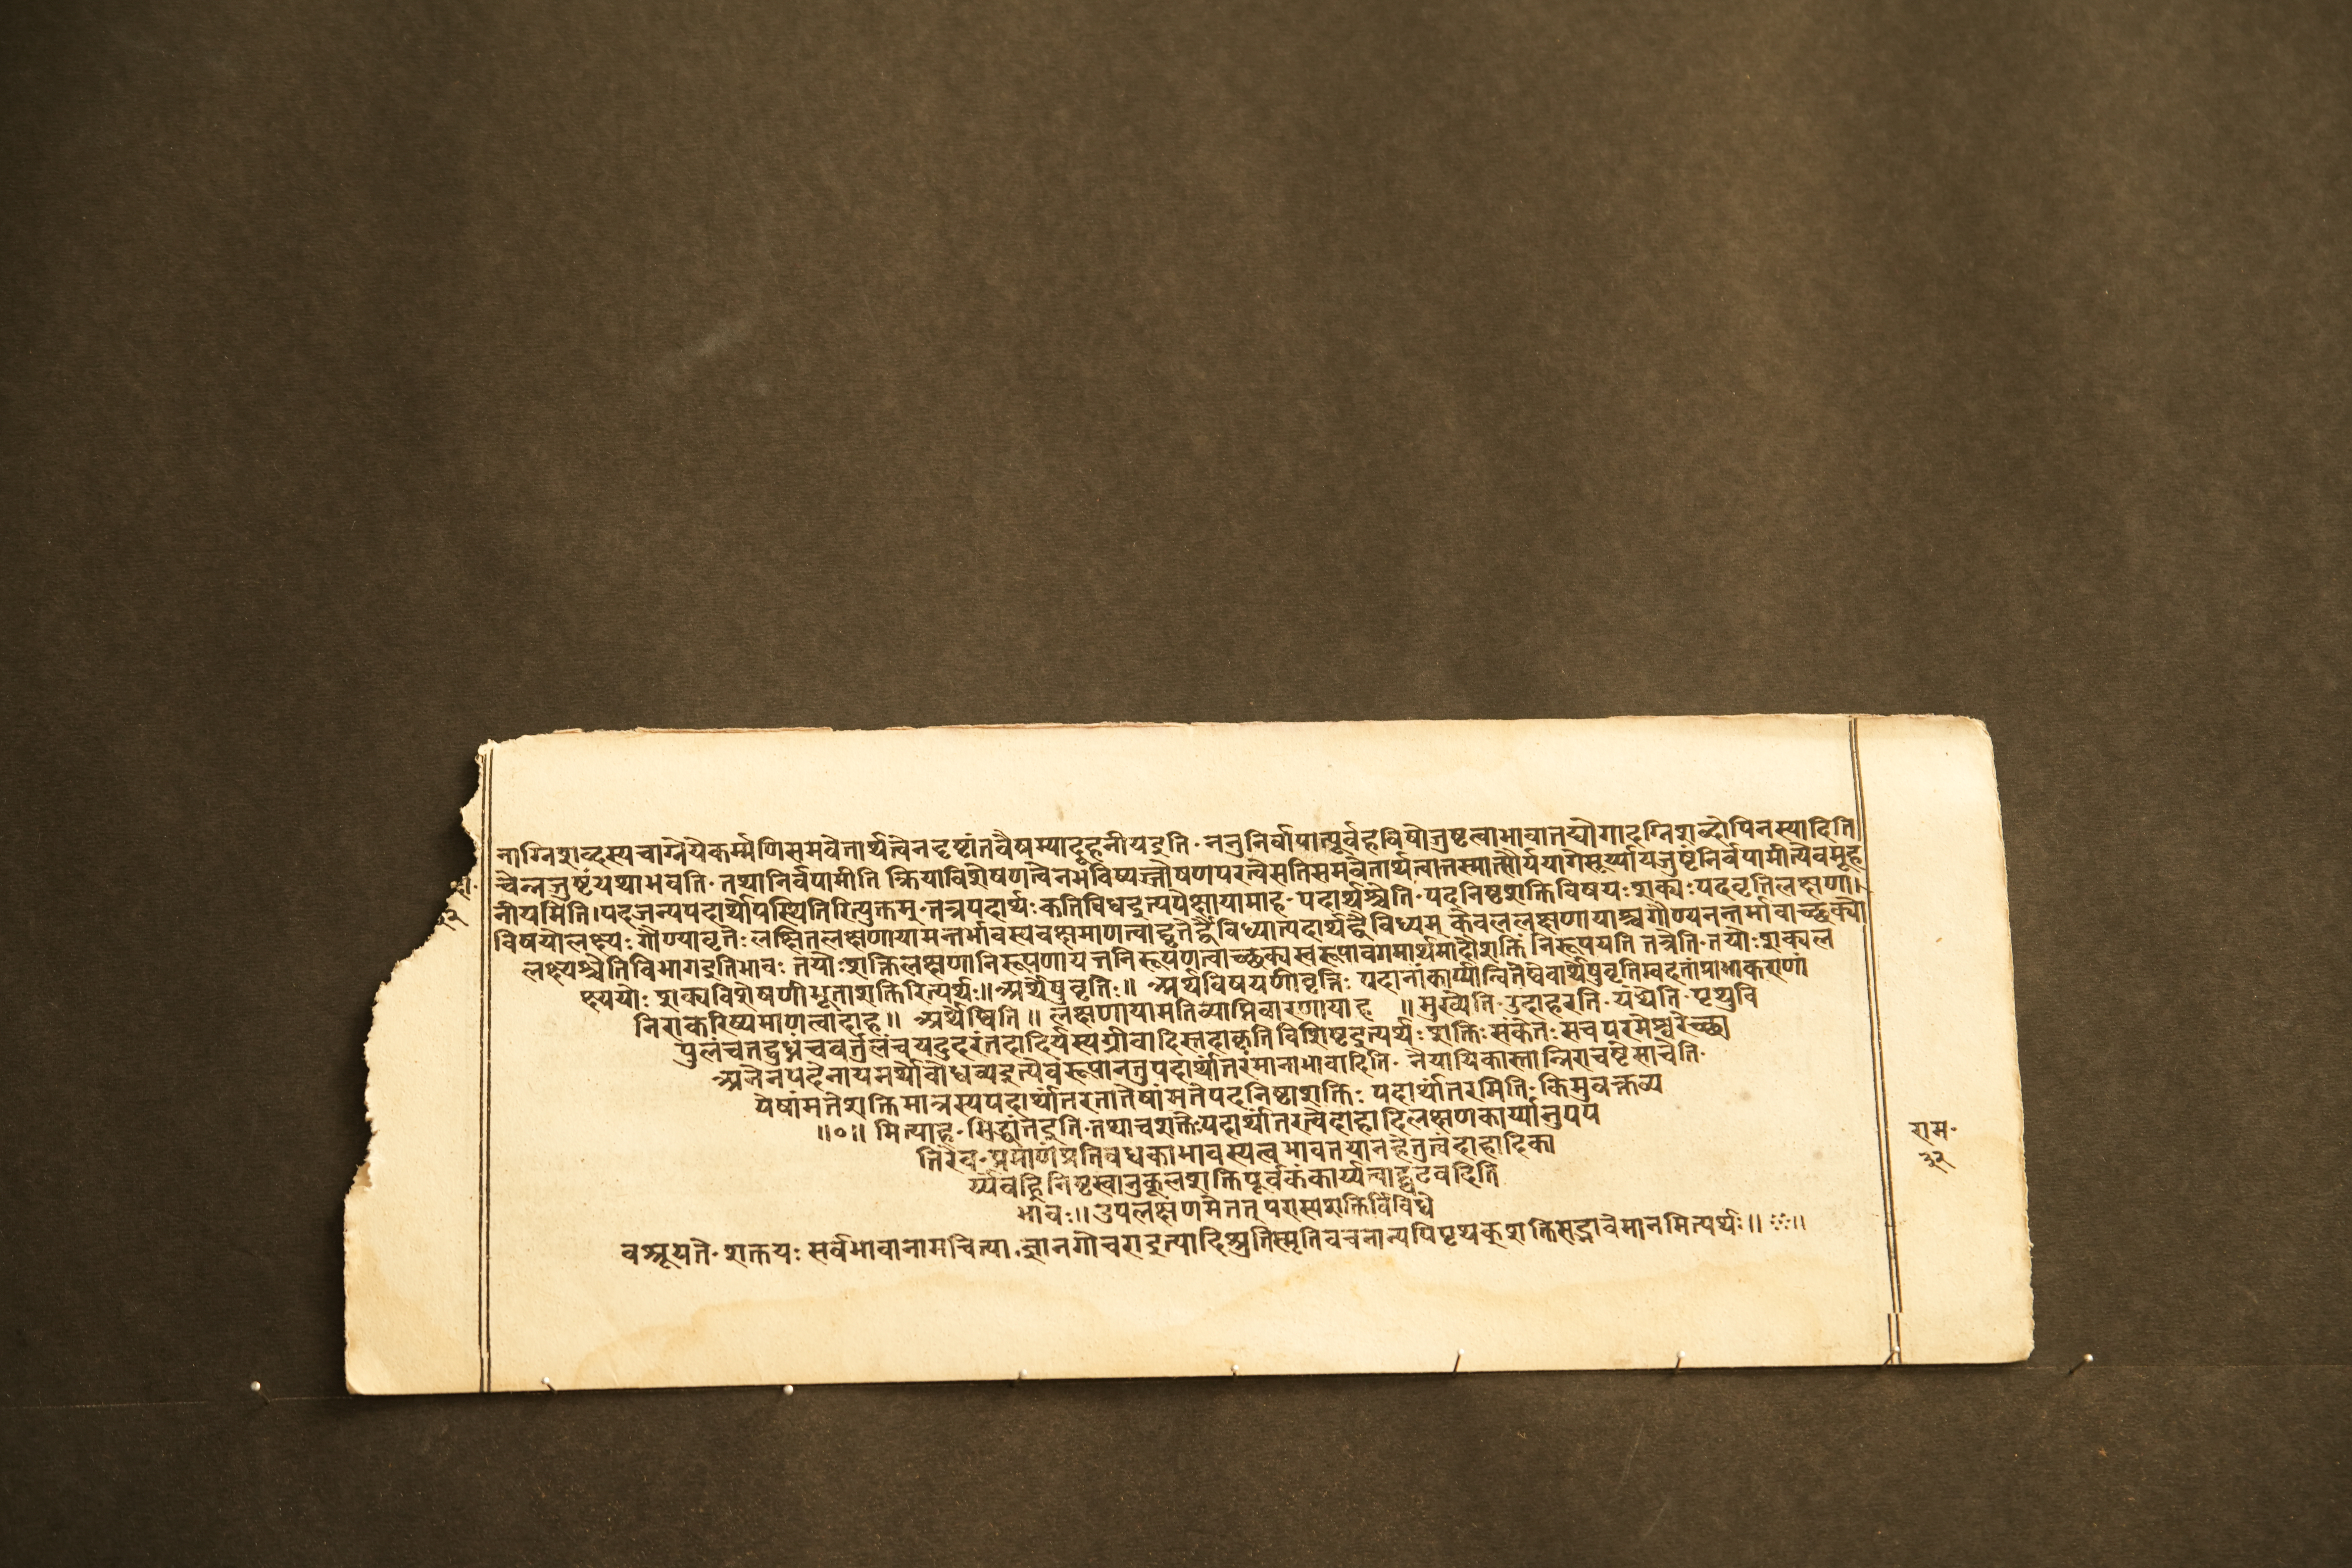 नाग्निशब्दस्यचाग्नेयेकर्म्मणिसमवेतार्थत्वेनदृष्टांतवैषम्यादूहनीयइति॰ननुनिर्वापात्पूर्वंहविषोजुष्टत्वाभावात्तद्योगादग्निशब्दोपिनस्यादिति
च्चेन्नजुष्टंयथाभवति॰तथानिर्वपामीति क्रियाविशेषणत्वेनभविष्यज्जोषणपरत्वेसतिसमवेतार्थत्वात्तस्मात्सौर्ययागेसूर्य्यायजुष्टंनिर्वपामीत्येवमूह
नीयमिति।पदजन्यपदार्थोपस्थितिरित्युक्तम्॰तत्रपदार्थःकतिविधइत्यपेक्षायामाह॰पदार्थश्चेति॰पदनिष्ठशक्तिविषयःशक्यःपदवृत्तिलक्षणा।
विषयोलक्ष्यःगौण्यावृत्तेःलक्षितलक्षणायामन्तर्भावस्यवक्ष्यमाणत्वाद्वृत्तेर्द्वैविध्यात्पदार्थद्वैविध्यम् केवललक्षणायाश्चगौण्यनन्तर्भावाच्छक्यो
लक्ष्यश्चेतिविभागइतिभावः तयोःशक्तिलक्षणानिरूपणाय तन्निरूपणत्वाच्छक्यस्वरूपावगमार्थमादौशक्तिं निरूपयति तत्रेति॰तयोःशक्यल
क्ष्ययोः शक्यविशेषणीभूताशक्तिरित्यर्थः॥अर्थेषुवृत्तिः॥ अर्थविषयिणीवृत्तिः पदानांकार्य्यान्वितेष्वेवार्थेषुवृत्तिम्वदतांप्राभाकराणां
निराकरिष्यमाणत्वादाह॥ अर्थेष्विति॥ लक्षणायामतिव्याप्तिवारणायाह ॥मुख्येति॰उदाहरति॰यथेति॰पृथुवि
पुलंचतद्बुध्नंचवर्त्तुलंचयदुदरंतदादिर्यस्यग्रीवादिस्तदाकृतिविशिष्टइत्यर्थः शक्तिः संकेतः सच परमेश्वरेच्छा
अनेनपदेनायमर्थोबोधव्यइत्येवंरूपानतुपदार्थांतरंमानाभावादिति॰ नैयायिकास्तान्निराचष्टेसाचेति॰
येषांमतेशक्तिमात्रस्यपदार्थांतरतातेषांमतेपदनिष्ठाशक्तिः पदार्थांतरमिति॰किमुवक्तव्य
॥०॥ मित्याह॰सिद्धांतेइति॰तथाचशक्तेःपदार्थांतरत्वेदाहादिलक्षणकार्य्यानुपप
त्तिरेव॰प्रमाणंप्रतिबंधकाभावस्यत्वभावतयानहेतुत्वंदाहादिका
र्य्यंवह्निनिष्ठस्वानुकूलशक्तिपूर्वकंकार्य्यत्वाद्घटवदिति
भावः॥उपलक्षणमेतत् परास्यशक्तिर्विविधै
वश्रूयते॰शक्तयः सर्वभावानामचिंत्या ज्ञानगोचराइत्यादिश्रुतिस्मृतिवचनान्यपिपृथक्शक्तिसद्भावेमानमित्यर्थः॥
राम॰
३२